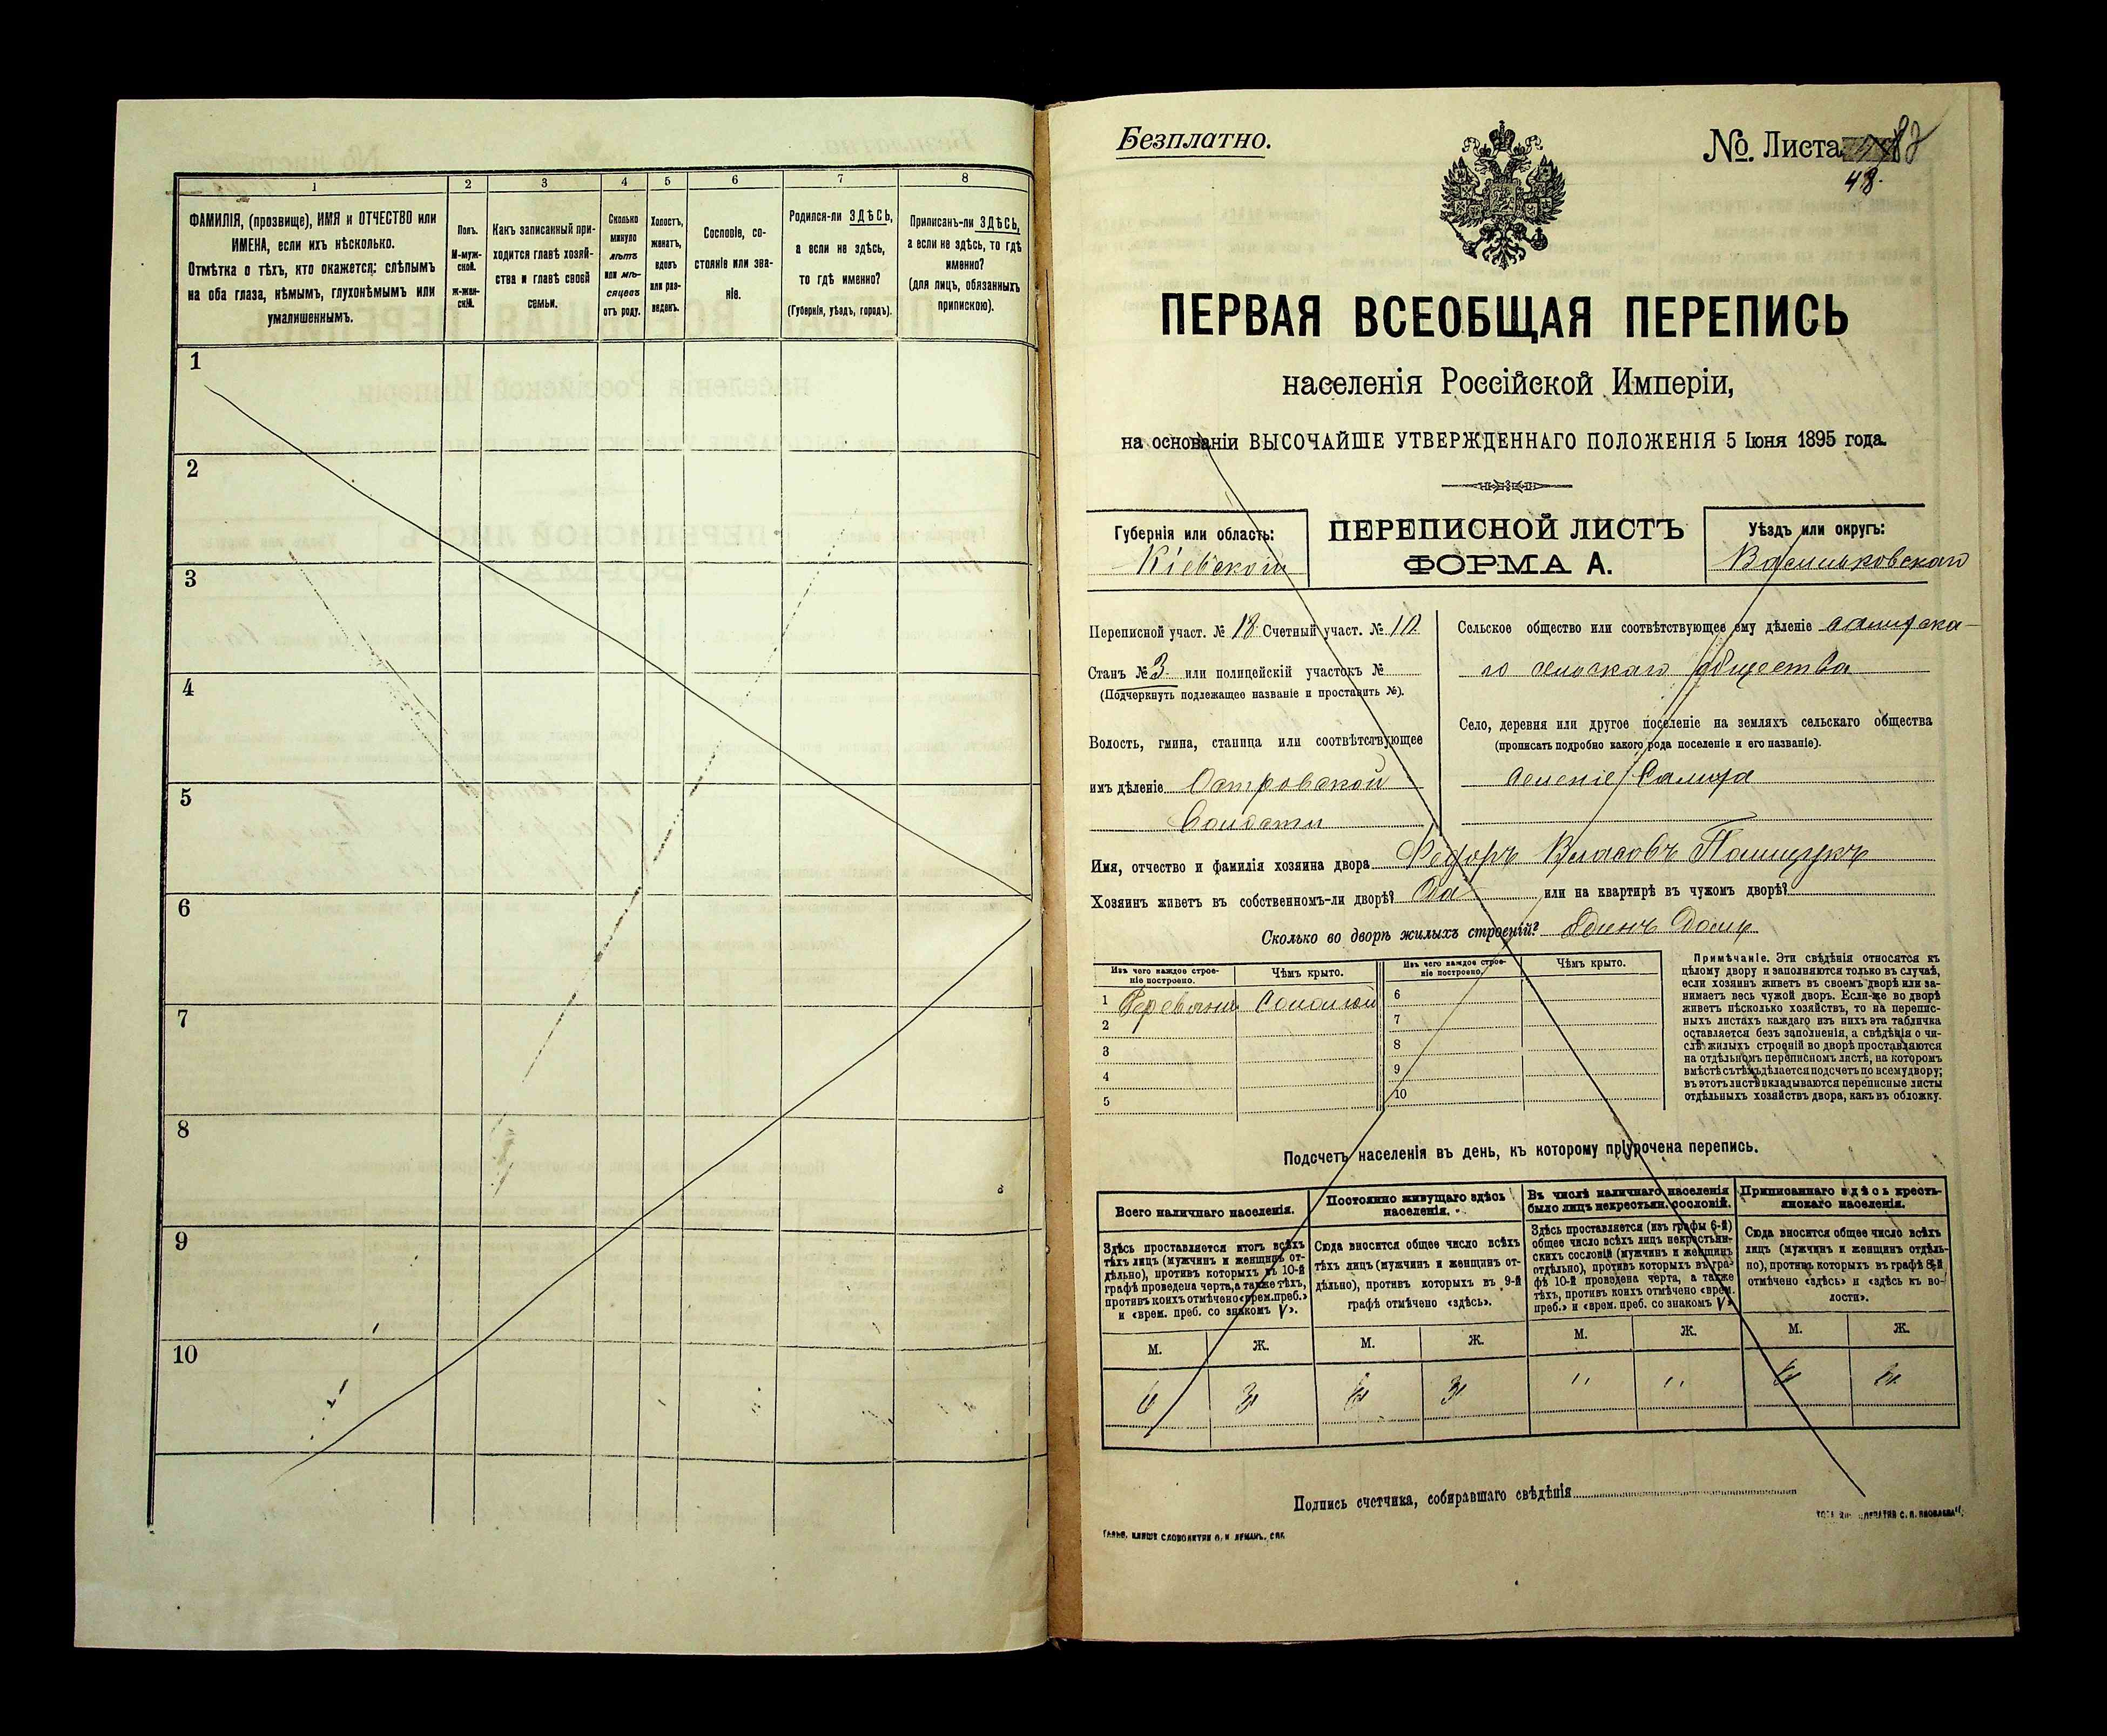 1
2
3
4
5
6
7
8
ФАМИЛІЯ, (прозвище), ИМЯ и ОТЧЕСТВО или
ИМЕНА, если ихъ нѣсколько.
Отмѣтка о тѣхъ, кто окажется: слѣпымъ
на оба глаза, нѣмымъ, глухонѣмымъ или
умалишеннымъ.
Полъ.
М-муж-
ской.
ж-жен-
скій.
Какъ записанный при-
ходится главѣ хозяй-
ства и главѣ своей
семьи.
Сколько
минуло
лѣтъ
или мѣ-
сяцевъ
отъ роду.
Холостъ,
женатъ,
вдовъ
или раз-
веденъ.
Сословіе, со-
стояніе или зва-
ніе.
Родился-ли ЗДѢСЬ,
а если не здѣсь,
то гдѣ именно?
(Губернія, уѣздъ, городъ).
Приписанъ-ли ЗДѢСЬ,
а если не здѣсь, то гдѣ
именно?
(для лицъ, обязанныхъ
припискою).
1
2
3
4
5
6
7
8
9
10
Безплатно.
№. Листа
48.
ПЕРВАЯ ВСЕОБЩАЯ ПЕРЕПИСЬ
населенія Россійской Имперіи,
на основаніи ВЫСОЧАЙШЕ УТВЕРЖДЕННАГО ПОЛОЖЕНІЯ 5 Іюня 1895 года.
Губернія или область:
Кіевской
ПЕРЕПИСНОЙ ЛИСТЪ
ФОРМА А.
Уѣздъ или округъ:
Васильковскаго
Переписной участ. № 13. Счетный участ. №
Станъ № 3. или полицейскій участокъ №
(Подчеркнуть подлежащее названіе и проставить №).
Волость, гмина, станица или соотвѣтствующее
имъ дѣленіе Островской
Волости
Сельское общество или соотвѣтствующее ему дѣленіе
го сельскаго общества
Село, деревня или другое поселеніе на земляхъ сельскаго общества
(прописать подробно какого рода поселеніе и его названіе).
Селеніе
Имя, отчество и фамилія хозяина двора Федоръ Власовъ
Хозяинъ живетъ въ собственномъ-ли дворѣ? Да или на квартирѣ въ чужомъ дворѣ?
Сколько во дворѣ жилыхъ строеній? Одинъ Домъ
Изъ чего каждое строе-
ніе построено.
Чѣмъ крыто.
Изъ чего каждое строе-
ніе построено.
Чѣмъ крыто.
1 Деревяни Соломой
2
3
4
5
6
7
8
9
10
Примѣчаніе. Эти свѣдѣнія относятся къ
цѣлому двору и заполняются только въ случаѣ,
если хозяинъ живетъ въ своемъ дворѣ или за-
нимаетъ весь чужой дворъ. Если-же во дворѣ
живетъ нѣсколько хозяйствъ, то на перепис-
ныхъ листахъ каждаго изъ нихъ эта табличка
оставляется безъ заполненія, а свѣдѣнія о чи-
слѣ жилыхъ строеній во дворѣ проставляются
на отдѣльномъ переписномъ листѣ, на которомъ
вмѣстѣ съ тѣмъ дѣлается подсчетъ по всему двору;
въ этотъ листъ вкладываются переписные листы
отдѣльныхъ хозяйствъ двора, какъ въ обложку.
Подсчетъ населенія въ день, къ которому пріурочена перепись.
Всего наличнаго населенія.
Постоянно живущаго здѣсь
населенія.
Въ числѣ наличнаго населенія
было лицъ некрестьян. сословій.
Приписаннаго здѣсь кресть-
янскаго населенія.
Здѣсь проставляется итогъ всѣхъ
тѣхъ лицъ (мужчинъ и женщинъ от-
дѣльно), противъ которыхъ въ 10-й
графѣ проведена черта, а также тѣхъ,
противъ коихъ отмѣчено «врем. преб.»
и «врем. преб. со знакомъ V».
Сюда вносится общее число всѣхъ
тѣхъ лицъ (мужчинъ и женщинъ от-
дѣльно), противъ которыхъ въ 9-й
графѣ отмѣчено «здѣсь».
Здѣсь проставляется (изъ графы 6-й)
общее число всѣхъ лицъ некрестьян-
скихъ сословій (мужчинъ и женщинъ
отдѣльно), противъ которыхъ въ гра-
фѣ 10-й проведена черта, а также
тѣхъ, противъ коихъ отмѣчено «врем.
преб.» и «врем. преб. со знакомъ V».
Сюда вносится общее число всѣхъ
лицъ (мужчинъ и женщинъ отдѣль-
но), противъ которыхъ въ графѣ 8-й
отмѣчено «здѣсь» и «здѣсь къ во-
лости».
М. Ж. М. Ж. М. Ж. М. Ж.
6 3 6 3 " " 6
Подпись счетчика, собиравшаго свѣдѣнія